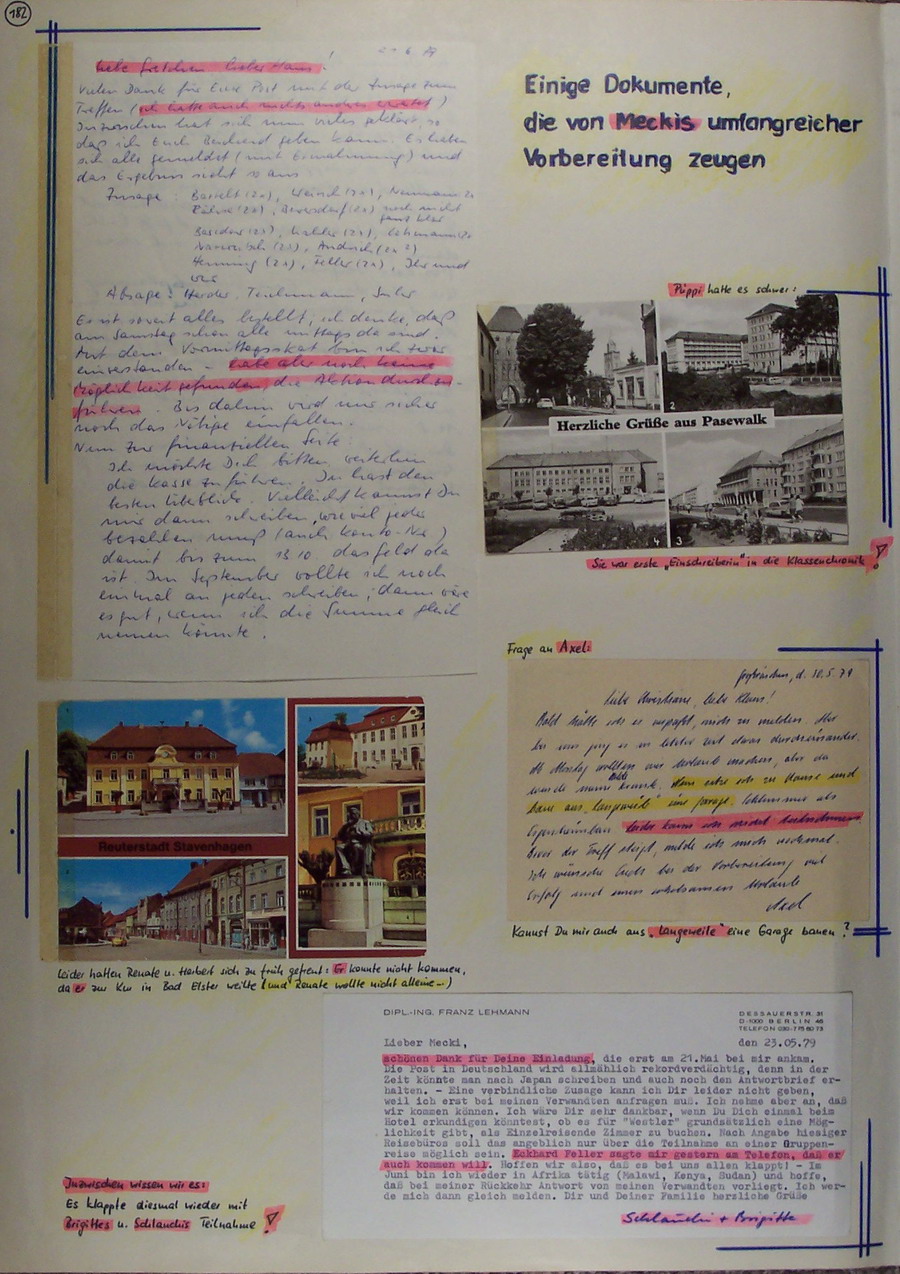 182
Einige Dokumente,
die von Meckis umfangreicher
Vorbereitung zeugen
Liebe Gretchen, lieber Hans!
Vielen Dank für Eure Post mit der Zusage zum
Treffen (ich hatte auch nichts anderes erwartet)
Inzwischen hat sich nun vieles geklärt, so
daß ich Euch Bescheid geben kann. Es haben
sich alle gemeldet (mit Ermahnung) und
das Ergebnis sieht so aus
Zusage: Barfelt (2x), Neumann 2x
noch nicht
ganz klar
Lehmann (2x)
Henning (2x), Feller (2x), Ihr und
wir
Absage: Harder, Teichmann,
Es ist soweit alles bestellt, ich denke, daß
am Samstag schon alle mittags da sind.
Mit dem Vormittagsskat bin ich zwar
einverstanden - habe aber noch keine
Möglichkeit gefunden, die Aktion durchzu-
führen. Bis dahin wird mir sicher
noch das Nötige einfallen.
Nun zur finanziellen Seite:
Ich möchte Dich bitten, weiterhin
die Kasse zu führen. Du hast den
besten Überblick. Vielleicht kannst Du
mir dann schreiben, wieviel jeder
bezahlen muß (auch Konto-Nr.)
damit bis zum 13.10. das Geld da
ist. Im September wollte ich noch
einmal an jeden schreiben; dann wäre
es gut, wenn ich die Summe gleich
nennen könnte.
Püppi hatte es schwer:
2
Herzliche Grüße aus Pasewalk
4
3
Sie war erste "Einschreiberin" in die Klassenchronik!
Frage an Axel:
d. 30.5.79
Liebe Christiane, liebe Klaus!
Bald hätte ich es verpaßt, mich zu melden. Aber
bei uns ging es in letzter Zeit etwas durcheinander.
wollten wir Urlaub machen, aber da
wurde meine krank. Nun sitze ich zu Hause und
baue aus "Langeweile" eine Garage. Schlimmer als
Eigenheimbau. Leider kann ich nicht teilnehmen.
Bevor der Treff steigt, melde ich mich nochmal.
Ich wünsche Euch bei der Vorbereitung viel
Erfolg und einen erholsamen Urlaub
Axel
Kannst Du mir auch aus "Langeweile" eine Garage bauen?
Reuterstadt Stavenhagen
Leider hatten Renate u. Herbert sich zu früh gefreut: Er konnte nicht kommen,
da er zur Kur in Bad Elster weilte (und Renate wollte nicht alleine--)
DIPL.-ING. FRANZ LEHMANN
DESSAUERSTR. 31
D-1000 BERLIN 46
TELEFON 030-775 60 73
Lieber Mecki, den 23.05.79
schönen Dank für Deine Einladung, die erst am 21.Mai bei mir ankam.
Die Post in Deutschland wird allmählich rekordverdächtig, denn in der
Zeit könnte man nach Japan schreiben und auch noch den Antwortbrief er-
halten. - Eine verbindliche Zusage kann ich Dir leider nicht geben,
weil ich erst bei meinen Verwandten anfragen muß. Ich nehme aber an, daß
wir kommen können. Ich wäre Dir sehr dankbar, wenn Du Dich einmal beim
Hotel erkundigen könntest, ob es für "Westler" grundsätzlich eine Mög-
lichkeit gibt, als Einzelreisende Zimmer zu buchen. Nach Angabe hiesiger
Reisebüros soll das angeblich nur über die Teilnahme an einer Gruppen-
reise möglich sein. Eckhard Feller sagte mir gestern am Telefon, daß er
auch kommen will. Hoffen wir also, daß es bei uns allen klappt! - Im
Juni bin ich wieder in Afrika tätig (Malawi, Kenya, Sudan) und hoffe,
daß bei meiner Rückkehr Antwort von meinen Verwandten vorliegt. Ich wer-
de mich dann gleich melden. Dir und Deiner Familie herzliche Grüße
Schlauchi + Brigitte
Inzwischen wissen wir es:
Es klappte diesmal wieder mit
Brigittes u. Schlauchis Teilnahme!